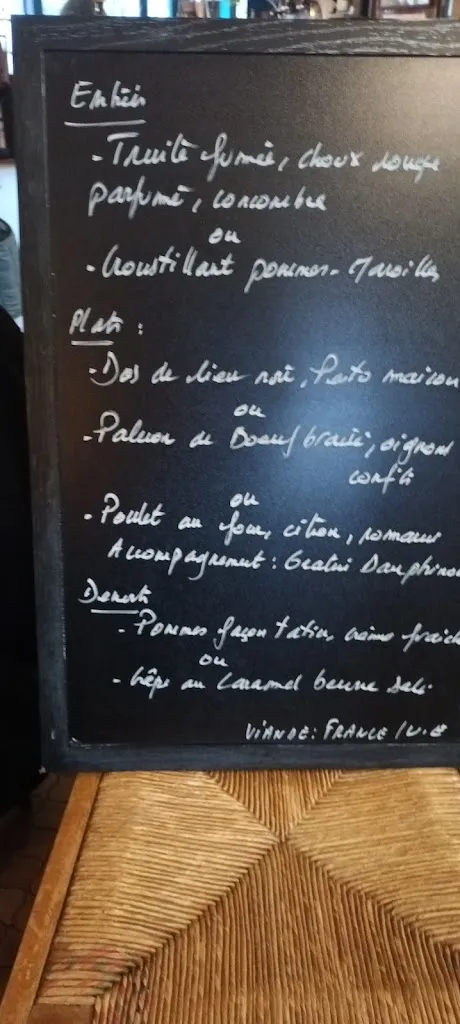 Entrées
- Truite fumée, choux rouge
parfumé, concombre
ou
- Croustillant pommes - Maroilles
Plats :
- Dos de lieu noir, Pesto maison
ou
- Paleron de Boeuf braisé, oignons
confits
ou
- Poulet au four, citron, romarin
Accompagnement : Gratin Dauphinois
Desserts
- Pommes façon tatin, crème fraîche
ou
- Crêpe au Caramel beurre salé.
VIANDE : FRANCE / U.E